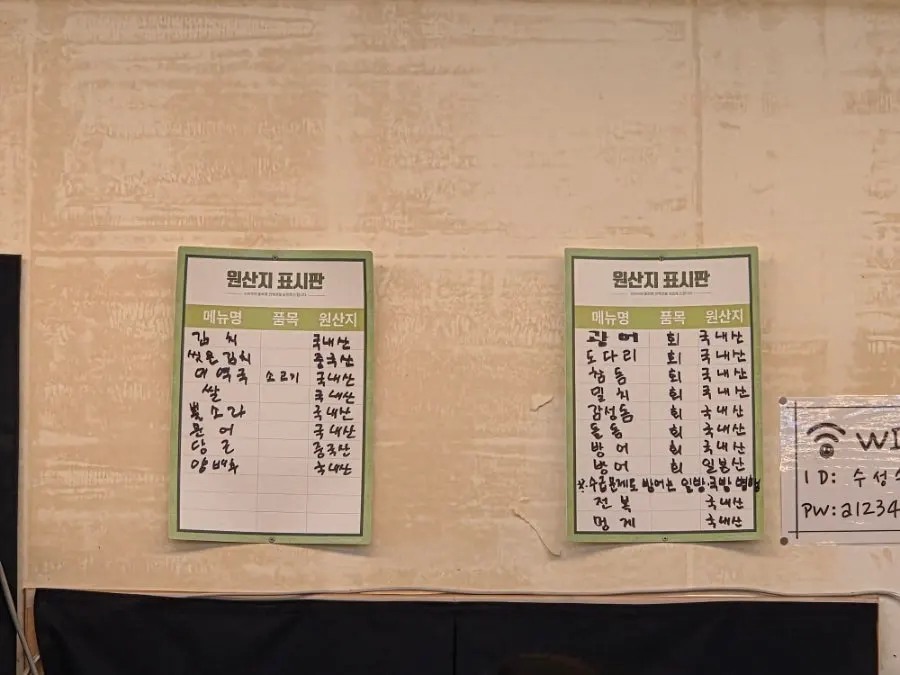 원산지 표시판
메뉴명 품목 원산지
김치 국내산
씻은김치 중국산
미역국 소고기 국내산
쌀 국내산
뿔소라 국내산
문어 국내산
당근 중국산
양배추 국내산
원산지 표시판
메뉴명 품목 원산지
광어 회 국내산
도다리 회 국내산
참돔 회 국내산
밀치 회 국내산
감성돔 회 국내산
돌돔 회 국내산
방어 회 국내산
방어 회 일본산
※수급문제로 방어는 일방,국방 병행
전복 국내산
멍게 국내산
WI
ID: 수성수
PW:a1234